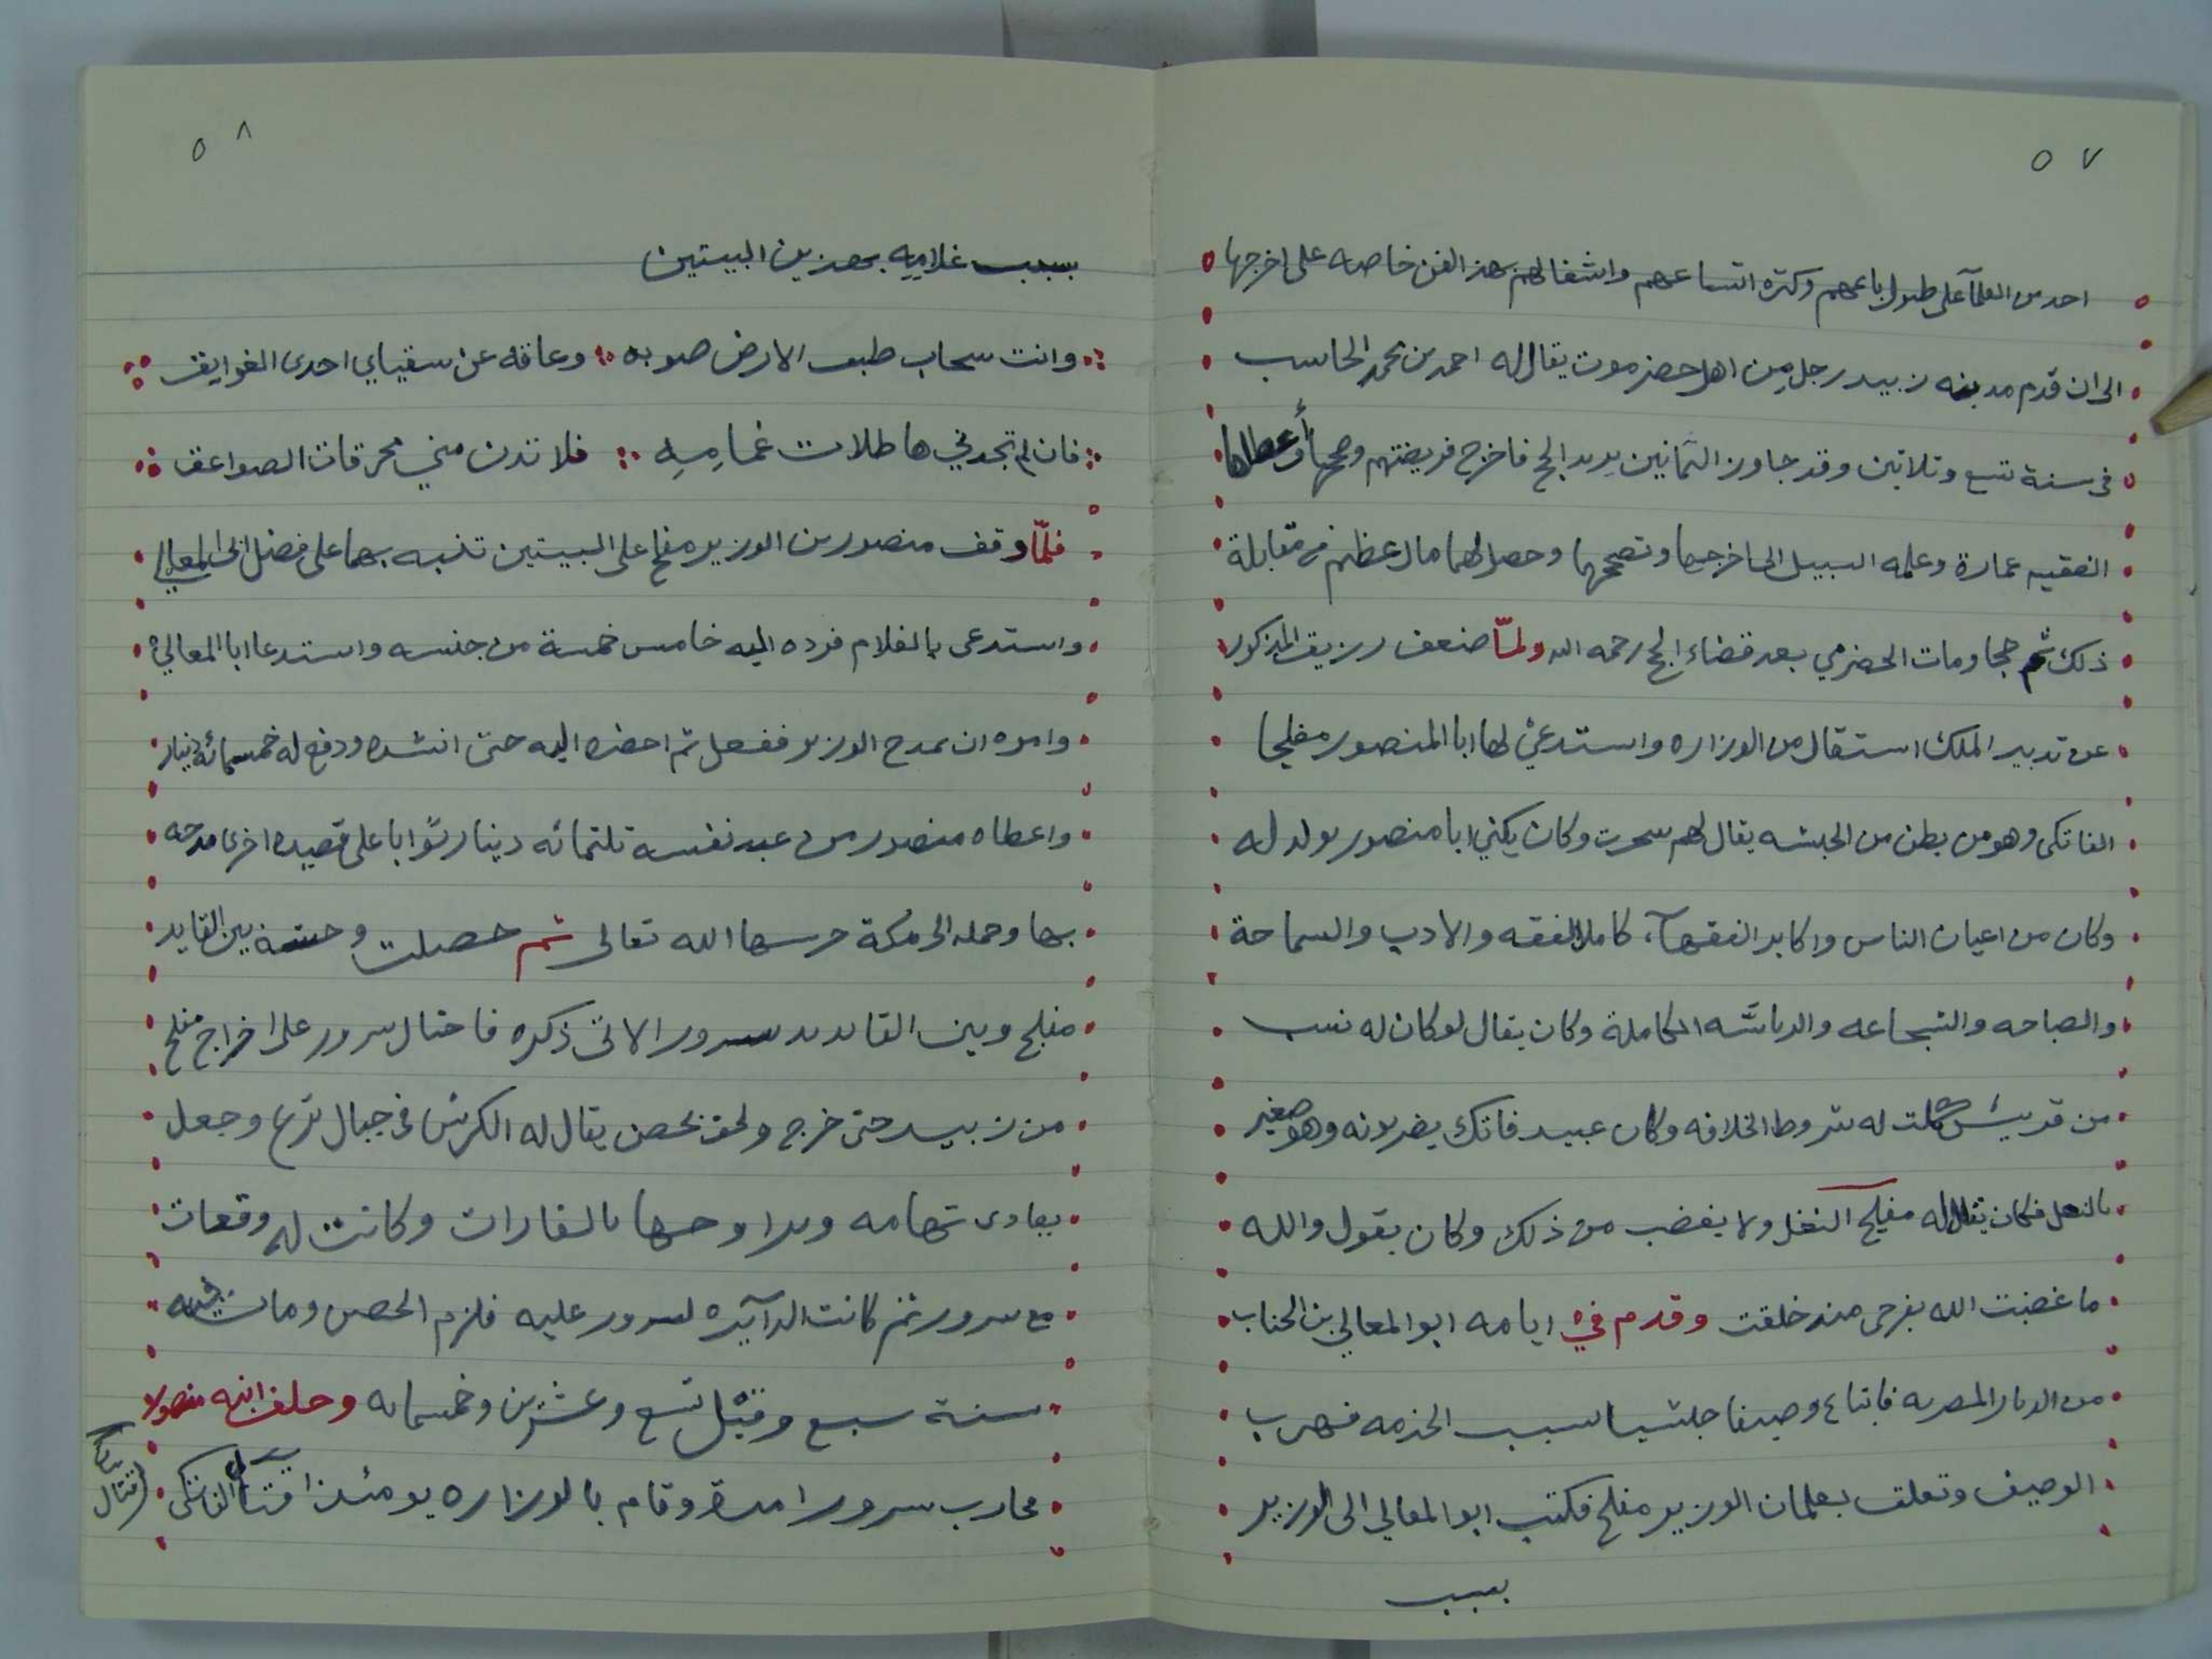 ٥٧
احد من العلمآ على طول باعهم وكثرة اتساعهم واشغالهم بهذا الفن خاصه على اخرجها
الى ان قدم مدينه زبيد رجل من اهل حضرموت يقال له احمد بن محمد الحاسب
فى سنة تسع وثلاثين وقد جاوز الثمانين يريد الحج فاخرج فريضتهم وصححها وأعطاها
الفقيه عمارة وعلمه السبيل الى اخرجها وتصححها وحصل لهما مال عظيم فى مقابلة
ذلك ثم حجا ومات الحضرمي بعد قضاء الحج رحمه الله ولمّا ضعف رزيق المذكور
عن تدبير الملك استقال من الوزاره واستدعي لها ابا المنصور مفلحا
الفاتكى وهو من بطن من الحبشه يقال لهم سحرت وكان يكني ابا منصور بولد له
وكان من اعيان الناس واكابر الفقهآء كاملا لفقه والادب والسماحة
والصباحه والشجاعه والرياسه الكاملة وكان يقال لو كان له نسب
من قريش كملت له شروط الخلافه وكان عبيد فاتك يضربونه وهو صغير
بالنعل فكان يقال له مفلح البغل ولا يغضب من ذلك وكان يقول والله
ما غضبت الله بفرجى منذ خلقت وقدم في ايامه ابو المعالي بن الحباب
من الديار المصريه فابتاع وصيفا حبشيا لسبب الخدمه فهرب
الوصيف وتعلق بغلمان الوزير مفلح فكتب ابو المعالي الى الوزير
بسبب
٥٨
بسبب غلامِهِ بهذين البيتين
وانت سحاب طبق الارض صوبه وعاقه عن سقياي احدى الغوايق
فان لم تجدني هاطلات غمامِهِ فلا تدن مني محرقات الصواعق
فلمّا وقف منصور بن الوزير مفلح على البيتين تنبه بهما على فضل ابى المعالي
واستدعى بالغلام فرده اليه خامس خمسة من جنسه واستدعا ابا المعالي
وامره ان يمدح الوزير ففعل ثم احضره اليه حتى انشده ودفع له خمسمائة دينار
واعطاه منصور من عند نفسه ثلثمائه دينار ثوابا على قصيده اخرى مدحه
بها وحمله الى مكة حرسها الله تعالى ثم حصلت وحشة بين القايد
مفلح وبين القايد سرور الاتى ذكره فاحتال سرور على اخراج مفلح
من زبيد حتى خرج ولحق بحصن يقال له الكرش فى جبال برع وجعل
يغادى تهامه ويراوحها بالغارات وكانت له وقعات
مع سرور ثم كانت الدآيره لسرور عليه فلزم الحصن ومات فيه
سنة سبع وقيل تسع وعشرين وخمسمايه وخلف ابنه منصورا
فحارب سرورا مدة وقام بالوزاره يومئذ اقبال الفاتكى